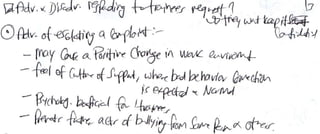 Adv. & Disadv. regarding to trainee request?
so they want keep it
Confidential
① Adv. of escalating a complaint:-
- may Cause a Positive Change in work enviroment
- feel of Culture of Support, where bad behavior Correction
is expected & Normal
- Psycholog. beneficial for trainee,
- Prevents further acts of bullying from same Person or other.